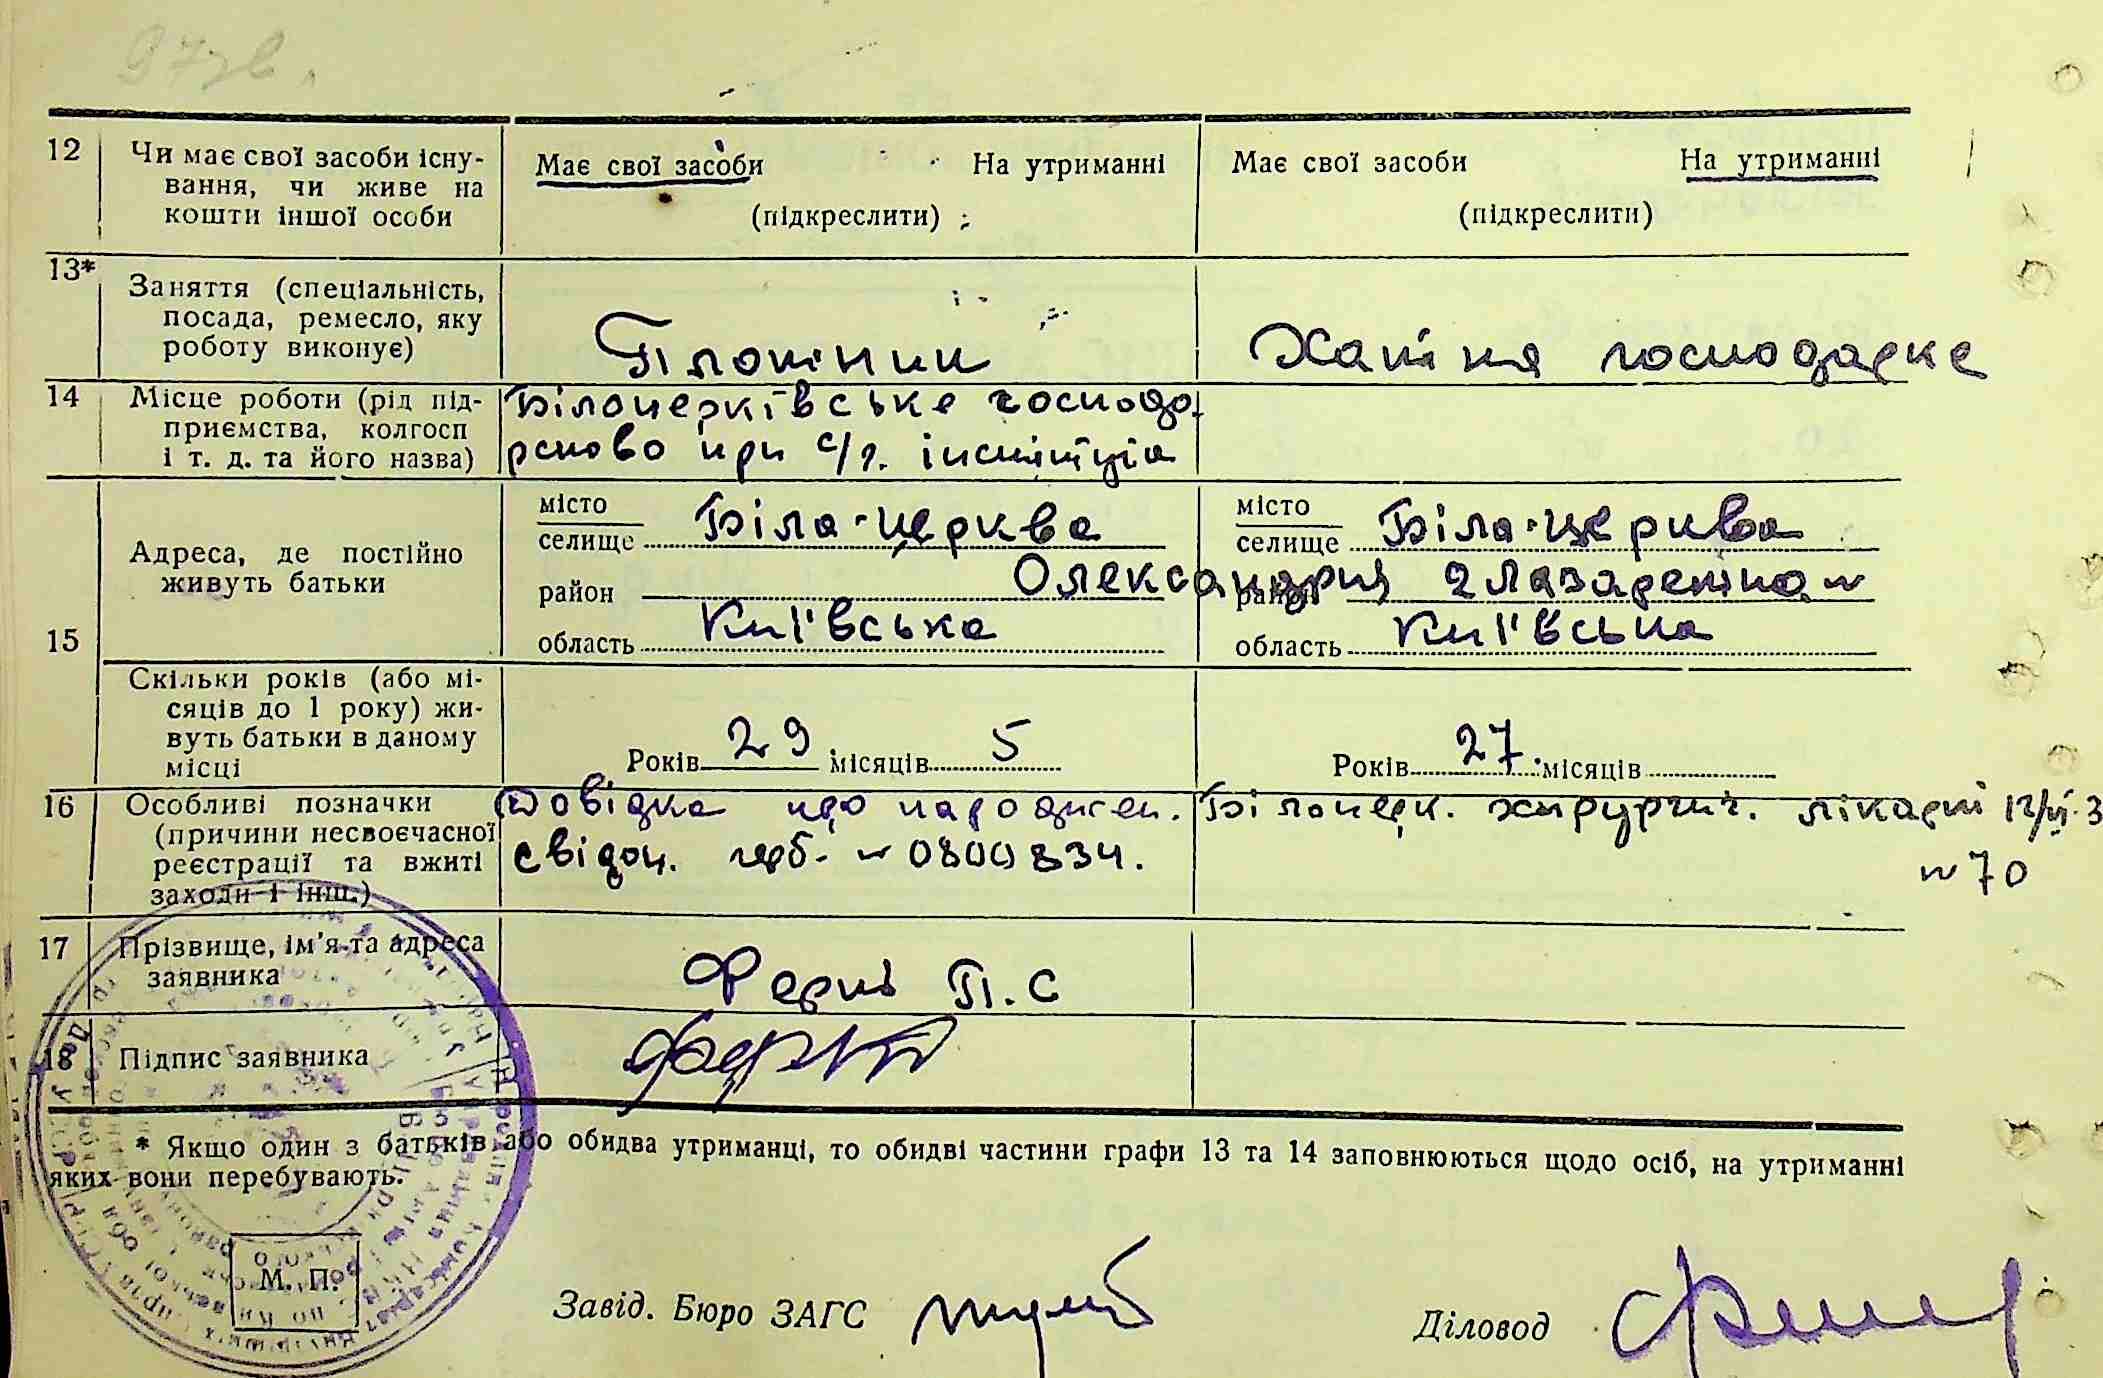 12 Чи має свої засоби існу-
вання, чи живе на
кошти іншої особи
Має свої засоби На утриманні
(підкреслити)
Має свої засоби На утриманні
(підкреслити)
13* Заняття (спеціальність,
посада, ремесло, яку
роботу виконує)
Хатня господарка
14 Місце роботи (рід під-
приємства, колгосп
і т. д. та його назва)
Білоцерківське господа
рство при с/г. інституті
15 Адреса, де постійно
живуть батьки
місто
селище Біла-церква
район Олександрия
область Київська
місто
селище Біла-церква
район
область Київська
Скільки років (або мі-
сяців до 1 року) жи-
вуть батьки в даному
місці
Років 29 місяців 5
Років 27 місяців
16 Особливі позначки
(причини несвоєчасної
реєстрації та вжиті
заходи і інш.)
Довідка про народжен. Білоцерк. хирургич. лікарні
свідоц. № 0800834.
№ 70
17 Прізвище, ім'я та адреса
заявника
П. С
18 Підпис заявника
* Якщо один з батьків або обидва утриманці, то обидві частини графи 13 та 14 заповнюються щодо осіб, на утриманні
яких вони перебувають.
М. П.
Завід. Бюро ЗАГС
Діловод